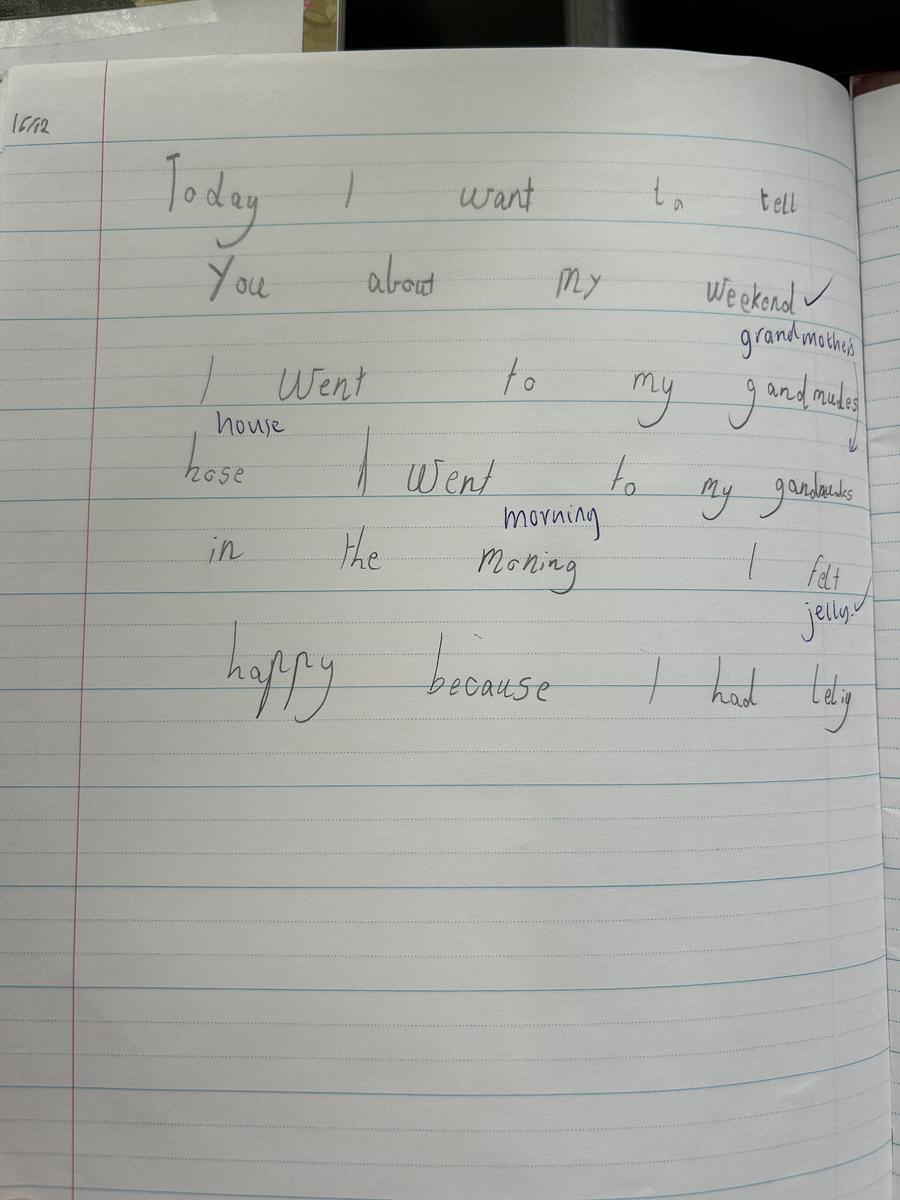 16/12
Today I want to tell
You about my weekend ✓
grandmothers
I Went to my gandmudes
house
hose I Went to my gandmudes
morning
in the moning I felt
jelly. ✓
happy because I had leliy